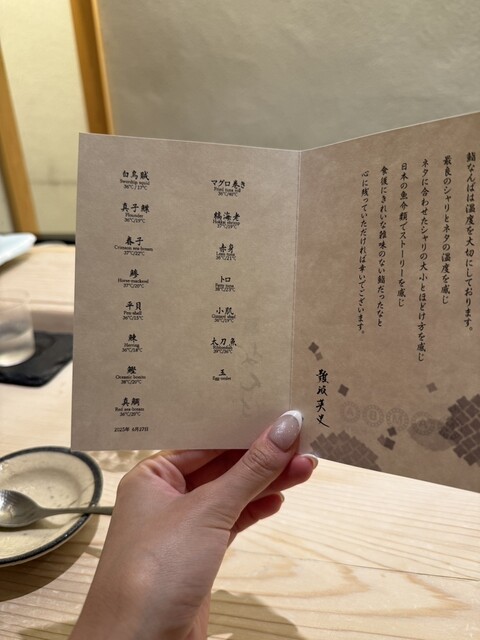 白烏賊
Swordtip squid
36℃ / 17℃
真子鰈
Flounder
36℃/19℃
春子
Crimson sea bream
37℃/32℃
鯵
Horse mackerel
37℃/16℃
平貝
Pen shell
36℃/15℃
鰊
Herring
36℃/14℃
鰹
Oceanic bonito
38℃/20℃
真鯛
Red sea bream
38℃/20℃
2025年 4月27日
マグロ巻き
縞海老
赤身
トロ
小肌
Gizzard shad
36℃/19℃
太刀魚
玉
Egg omlet
鮨なんばは温度を大切にしております。
最良のシャリとネタの温度を感じ
ネタに合わせたシャリの大小とほどけ方を感じ
日本の魚介類でストーリーを感じ
食後にきれいな雑味のない鮨だったなと
心に残っていただければ幸いでございます。
難波英史